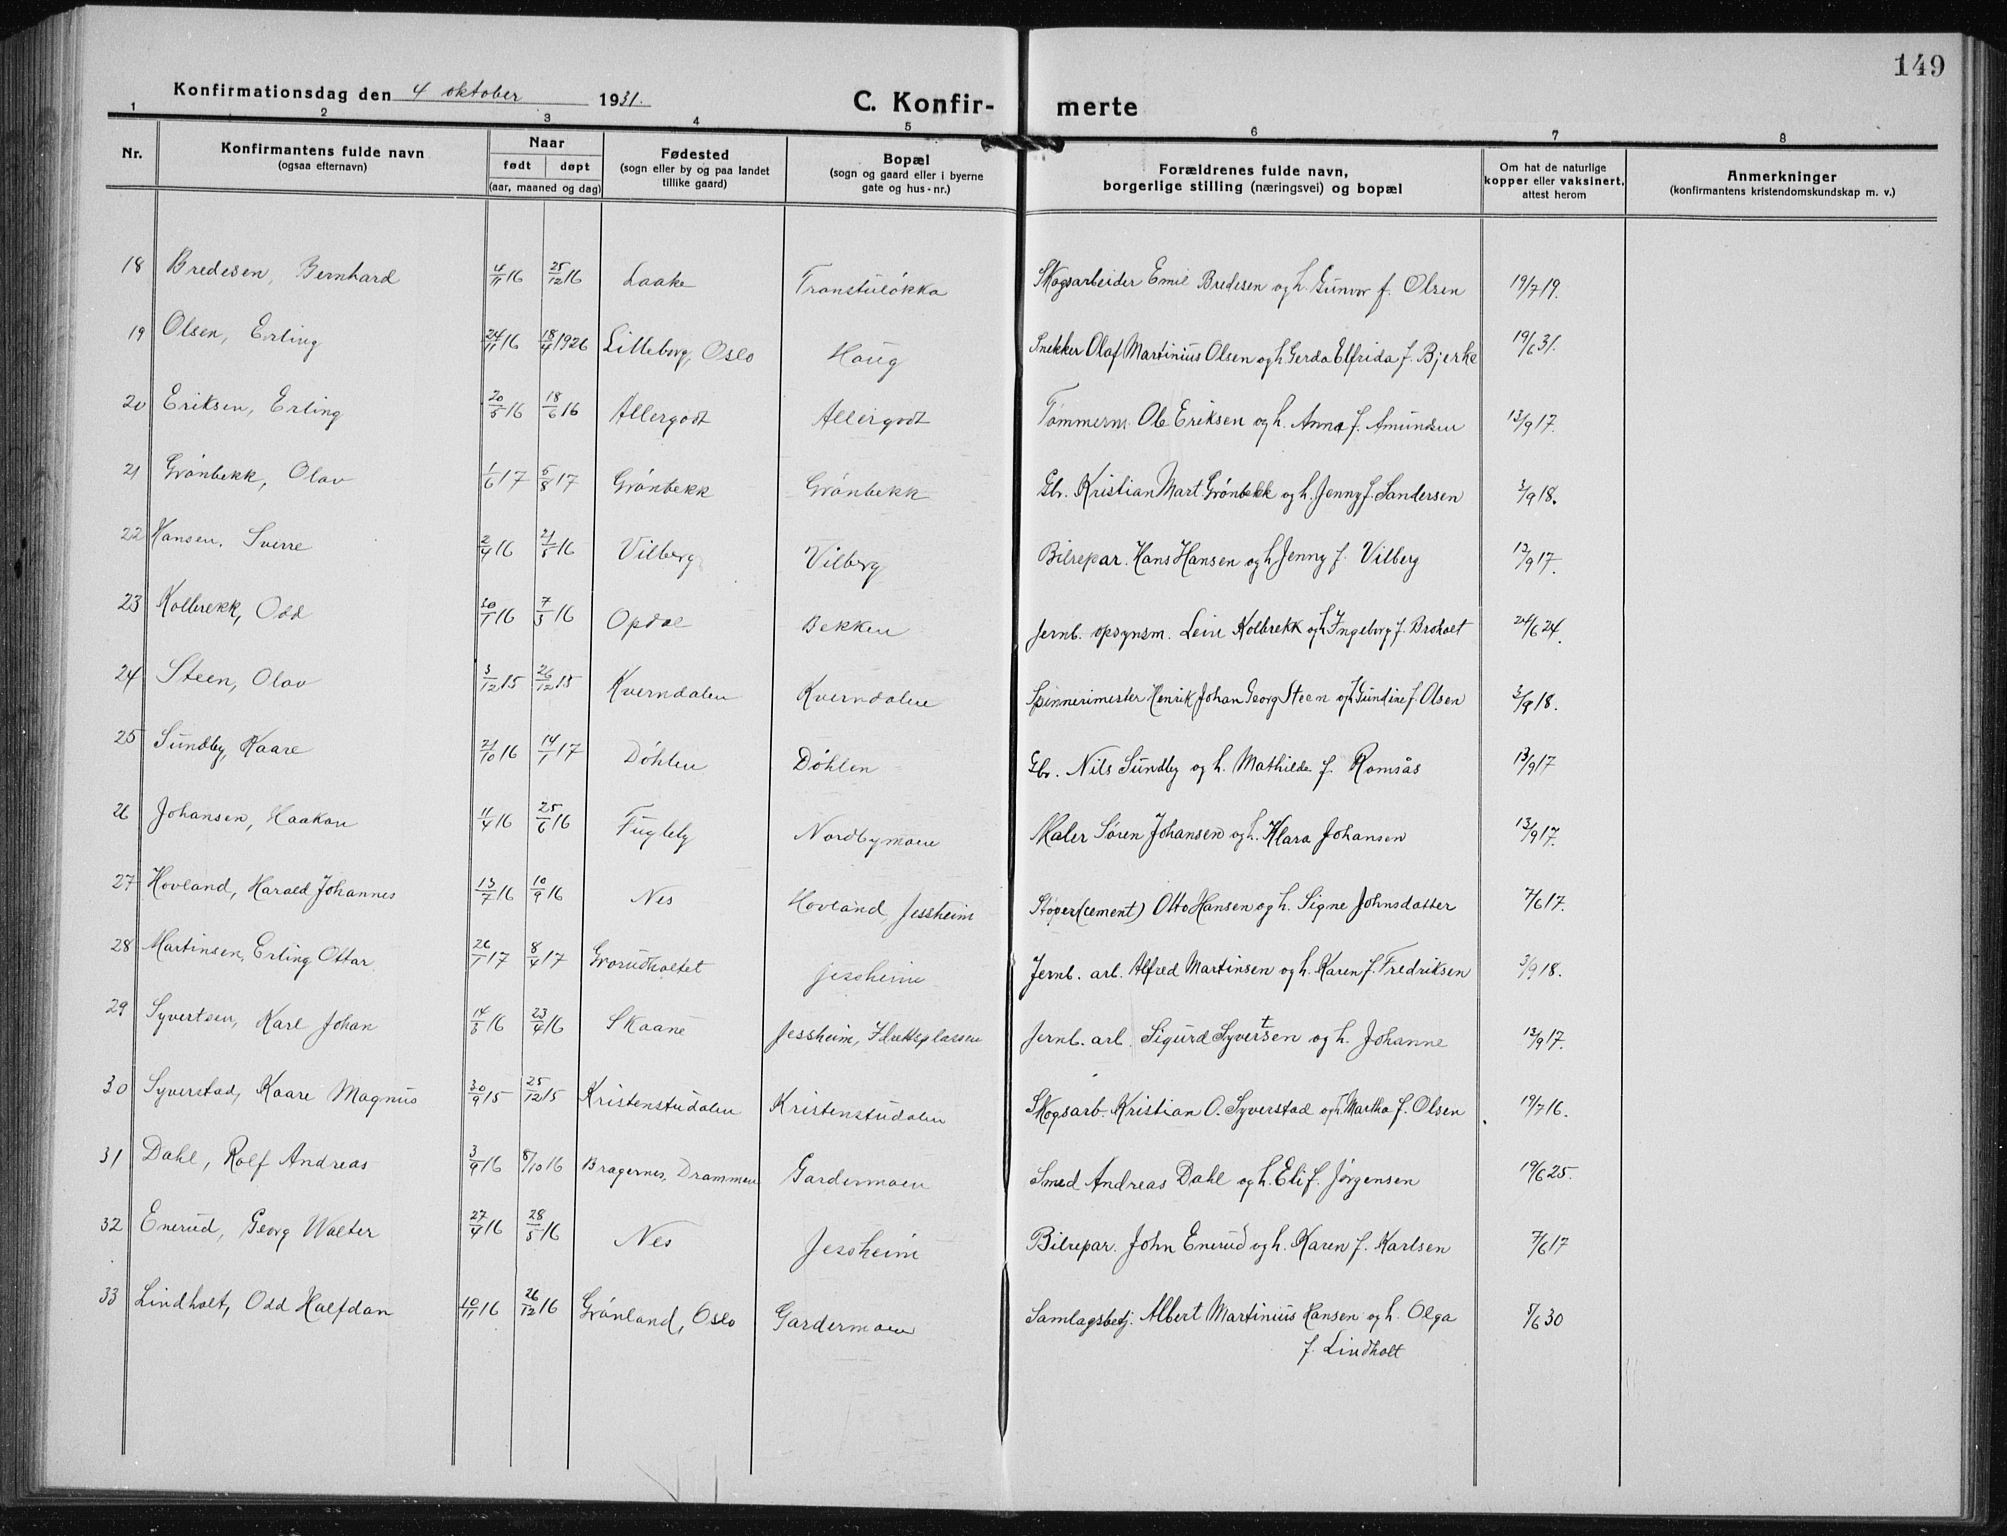 149
Konfirmationsdag den 4 oktober 1931.
C. Konfir- merte
1 2 3 4 5 6 7 8
Nr.
Konfirmantens fulde navn
(ogsaa efternavn)
Naar
født døpt
(aar, maaned og dag)
Fødested
(sogn eller by og paa landet
tillike gaard)
Bopæl
(sogn og gaard eller i byerne
gate og hus-nr.)
Forældrenes fulde navn,
borgerlige stilling (næringsvei) og bopæl
Om hat de naturlige
kopper eller vaksinert,
attest herom
Anmerkninger
(konfirmantens kristendomskundskap m. v.)
18 Bredesen, Bernhard 4/11 16 25/12 16 Laake Transtuløkka Skogsarbeider Emil Bredesen og h. Gunvor f. Olsen 19/7 19.
19 Olsen, Erling 24/11 16 18/4 1926 Lilleborg, Oslo Haug Snekker Olaf Martinius Olsen og h. Gerda Elfrida f. Bjerke 19/6 31.
20 Eriksen, Erling 20/5 16 18/6 16 Allergodt Allergodt Tømmerm. Ole Eriksen og h. Anna f. Amundsen 13/9 17.
21 Grønbekk, Olav 1/6 17 5/8 17 Grønbekk Grønbekk Gbr. Kristian Mart. Grønbekk og h. Jenny f. Sandersen 3/9 18.
22 Hansen, Sverre 2/4 16 21/5 16 Vilberg Vilberg Bilrepar. Hans Hansen og h Jenny f. Vilberg 13/9 17.
23 Kolbrekk, Odd 30/1 16 7/3 16 Opdal Bekken Jernb. opsynsm. Leiv Kolbrekk og h Ingeborg f. Broholt 24/6 24.
24 Steen, Olav 3/12 15 26/12 15 Kverndalen Kverndalen Spinnerimester Henrik Johan Georg Steen og h Gundine f. Olsen 3/9 18.
25 Sundby, Kaare 21/10 16 14/1 17 Døhlen Døhlen Gbr. Nils Sundby og h. Mathilde f. Romsås 13/9 17
26 Johansen, Haakon 11/4 16 25/6 16 Fugleby Nordbymoen Maler Søren Johansen og h. Klara Johansen 13/9 17.
27 Hovland, Harald Johannes 13/7 16 10/9 16 Nes Hovland, Jessheim Støper (cement) Otto Hansen og h. Signe Johnsdatter 7/6 17.
28 Martinsen, Erling Ottar 26/1 17 8/4 17 Grorudholtet Jessheim Jernb. arb. Alfred Martinsen og h. Karen f. Fredriksen 3/9 18.
29 Syvertsen, Karl Johan 14/3 16 23/4 16 Skaane Jessheim, Idrettsplassen Jernb. arb. Sigurd Syvertsen og h. Johanne 13/9 17.
30 Syverstad, Kaare Magnus 30/9 15 25/12 15 Kristenstudalen Kristenstudalen Skogsarb. Kristian O. Syverstad og h Martha f. Olsen 19/7 16.
31 Dahl, Rolf Andreas 3/9 16 8/10 16 Bragernes, Drammen Gardermoen Smed Andreas Dahl og h. Eli f. Jørgensen 19/6 25.
32 Enerud, Georg Walter 27/4 16 28/5 16 Nes Jessheim Bilrepar. John Enerud og h. Karen f. Karlsen 7/6 17
33 Lindholt, Odd Halfdan 10/11 16 26/12 16 Grønland, Oslo Gardermoen Samlagsbetj. Albert Martinius Hansen og h. Olga 5/6 30
f. Lindholt